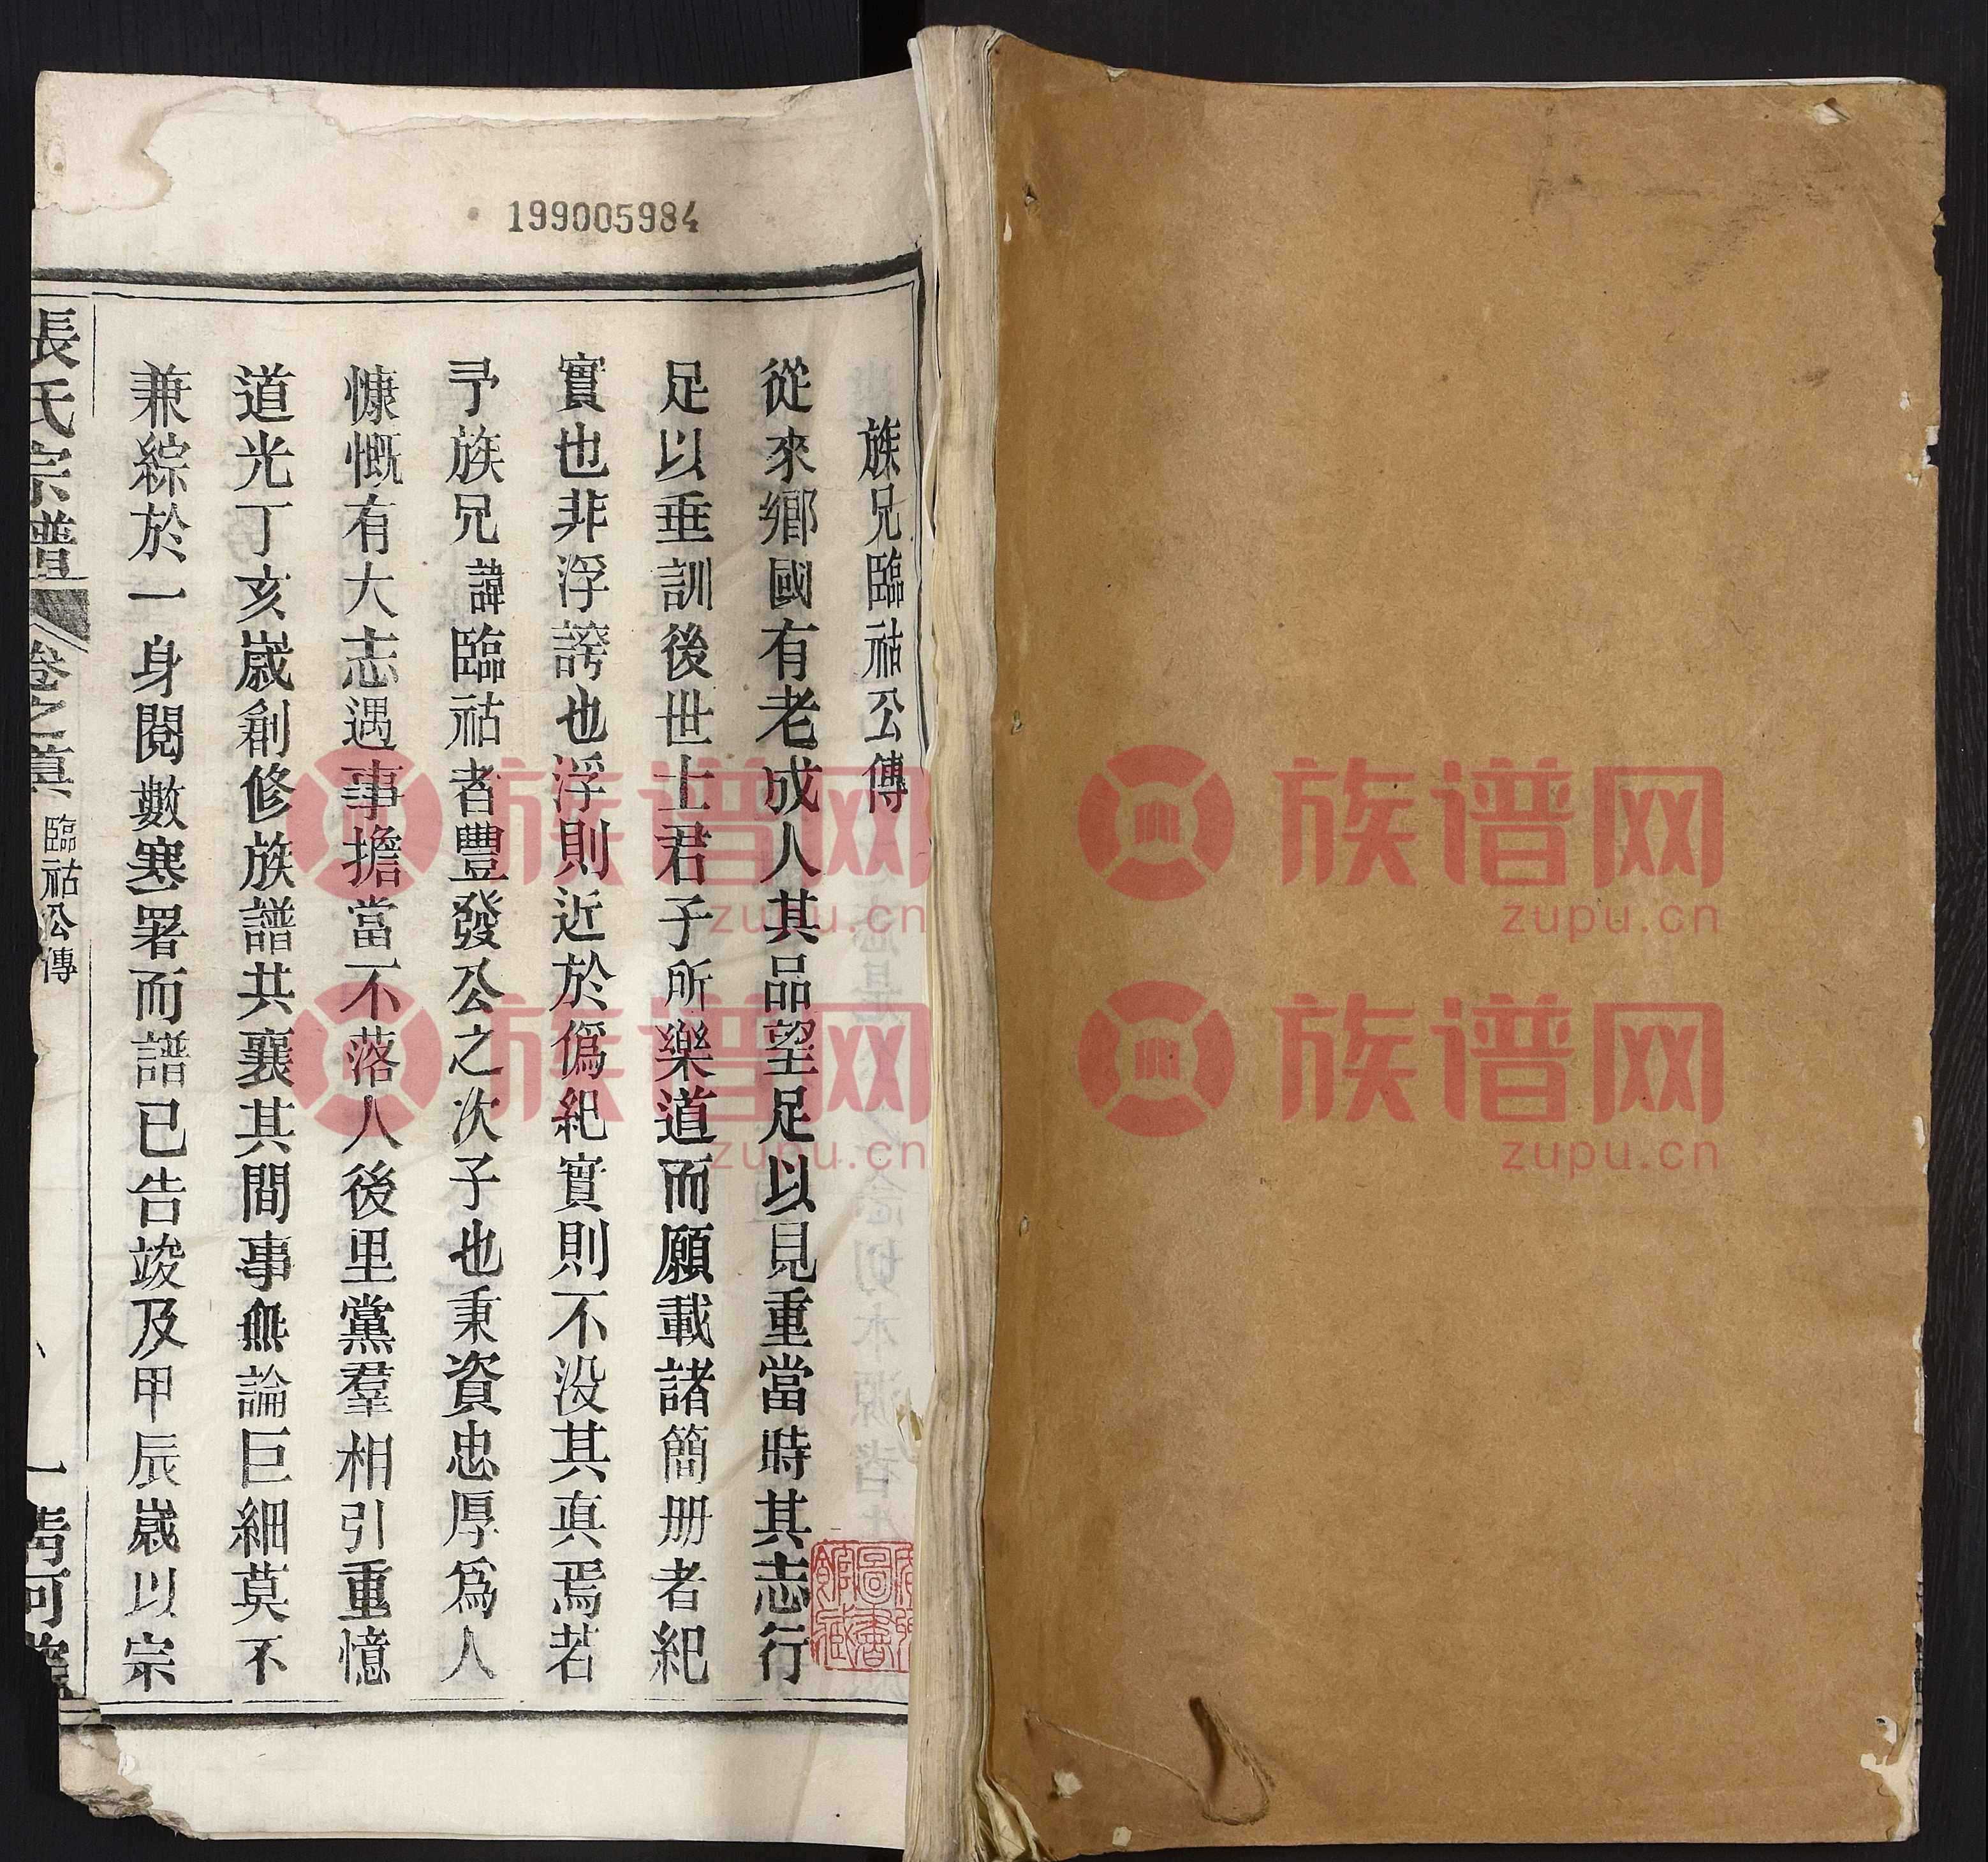 199005984
族兄臨祜公傳
從來鄉國有老成人其品望足以見重當時其志行
足以垂訓後世士君子所樂道而願載諸簡册者紀
實也非浮誇也浮則近於僞紀實則不没其真焉若
予族兄諱臨祜者豐發公之次子也秉資忠厚爲人
慷慨有大志遇事擔當不落人後里黨羣相引重憶
道光丁亥歲創修族譜共襄其間事無論巨細莫不
兼綜於一身閱數寒署而譜已告竣及甲辰歲以宗
張氏宗譜
卷之真
臨祜公傳
一
清河堂
圖書館藏
族谱网
zupu.cn
族谱网
zupu.cn
族谱网
zupu.cn
族谱网
zupu.cn